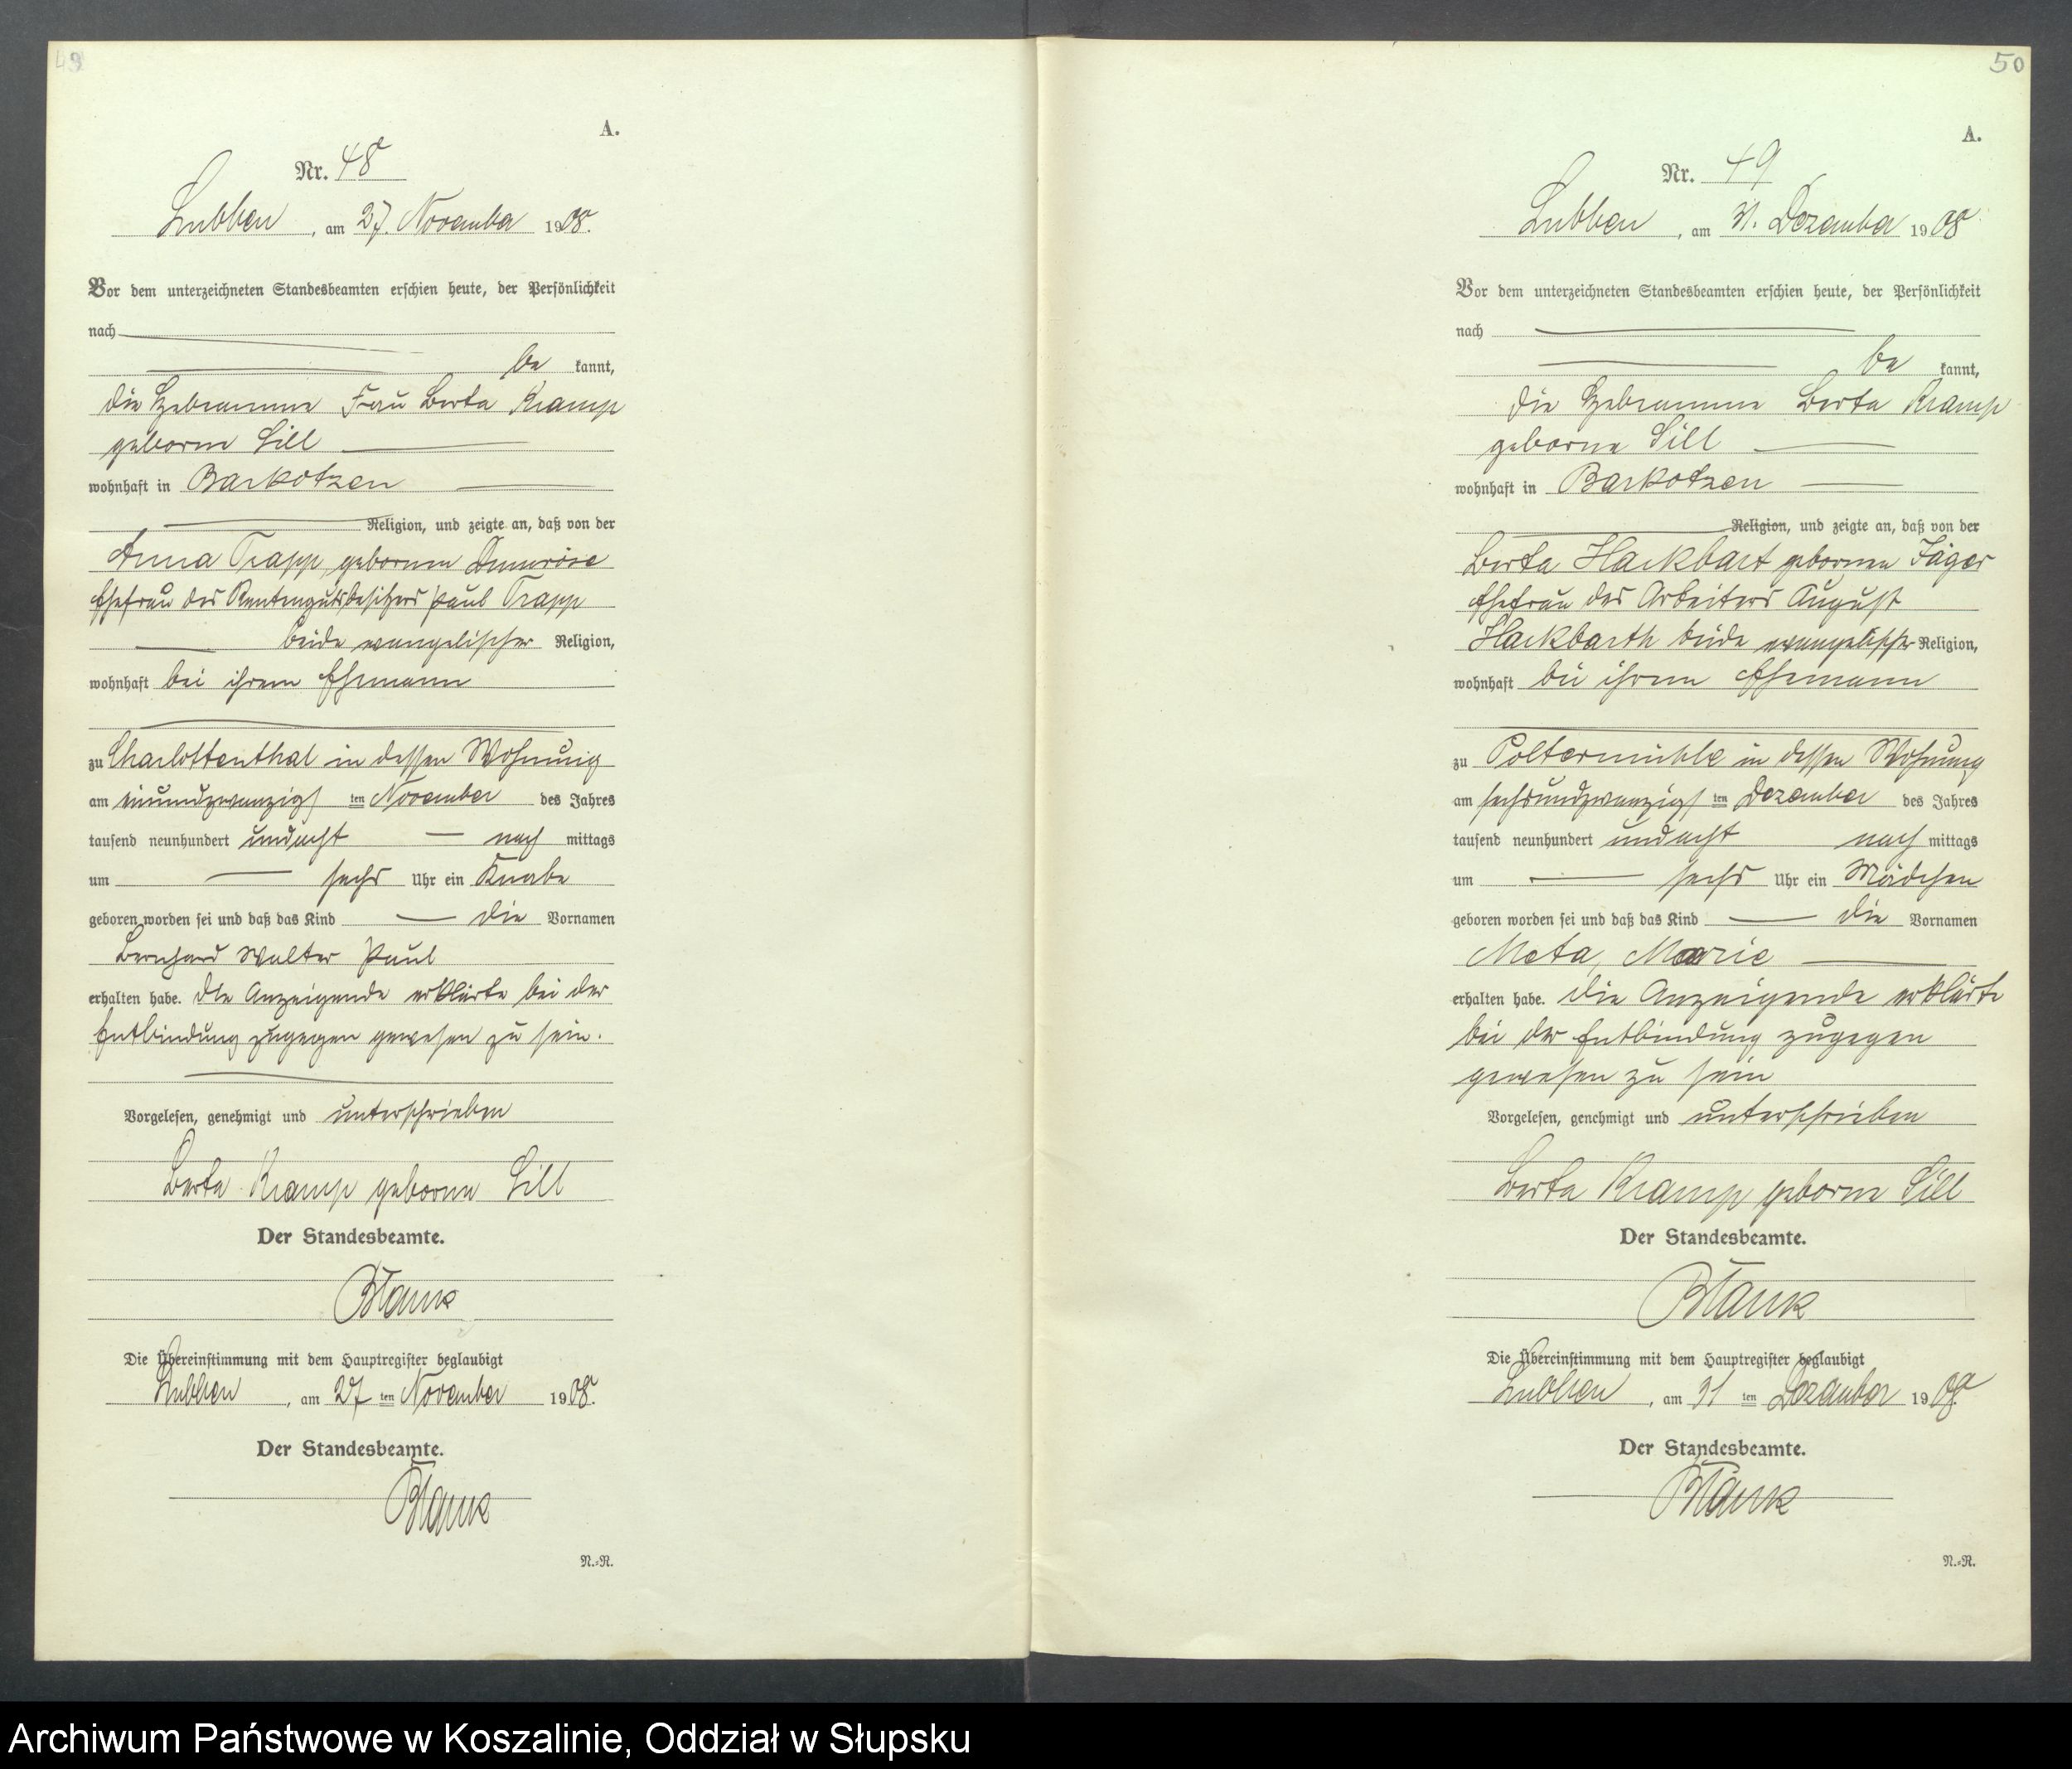 49
A.
Nr. 48
Lubben, am 27. November 1908.
Vor dem unterzeichneten Standesbeamten erschien heute, der Persönlichkeit
nach
be kannt,
die Hebamme Frau Berta Kramp
geborne Sill
wohnhaft in Barkotzen
Religion, und zeigte an, daß von der
Anna Trapp, gebornen
Ehefrau des Rentengutsbesitzers Paul Trapp
beide evangelischer Religion,
wohnhaft bei ihrem Ehemann
zu Charlottenthal in dessen Wohnung
am einundzwanzigs ten November des Jahres
tausend neunhundert undacht nach mittags
um sechs Uhr ein Knabe
geboren worden sei und daß das Kind die Vornamen
Bernhard Walter Paul
erhalten habe. Die Anzeigende erklärte bei der
Entbindung zugegen gewesen zu sein.
Vorgelesen, genehmigt und unterschrieben
Berta Kramp geborne Sill
Der Standesbeamte.
Blank
Die Übereinstimmung mit dem Hauptregister beglaubigt
Lubben, am 27 ten November 1908.
Der Standesbeamte.
Blank
N.-R.
50
A.
Nr. 49
Lubben, am 31. Dezember 1908
Vor dem unterzeichneten Standesbeamten erschien heute, der Persönlichkeit
nach
be kannt,
die Hebamme Berta Kramp
geborne Sill
wohnhaft in Barkotzen
Religion, und zeigte an, daß von der
Berta Hackbart gebornen Jäger
Ehefrau des Arbeiters August
Hackbarth beide evangelischer Religion,
wohnhaft bei ihrem Ehemann
zu Poltermühle in dessen Wohnung
am sechsundzwanzigs ten Dezember des Jahres
tausend neunhundert undacht nach mittags
um sechs Uhr ein Mädchen
geboren worden sei und daß das Kind die Vornamen
Meta, Marie
erhalten habe. Die Anzeigende erklärte
bei der Entbindung zugegen
gewesen zu sein
Vorgelesen, genehmigt und unterschrieben
Berta Kramp geborne Sill
Der Standesbeamte.
Blank
Die Übereinstimmung mit dem Hauptregister beglaubigt
Lubben, am 31 ten Dezember 1908.
Der Standesbeamte.
Blank
N.-R.
Archiwum Państwowe w Koszalinie, Oddział w Słupsku